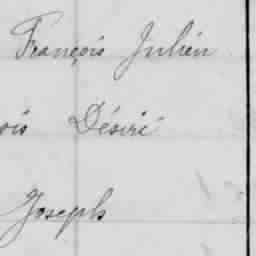 François Julien
ois Désiré
Joseph